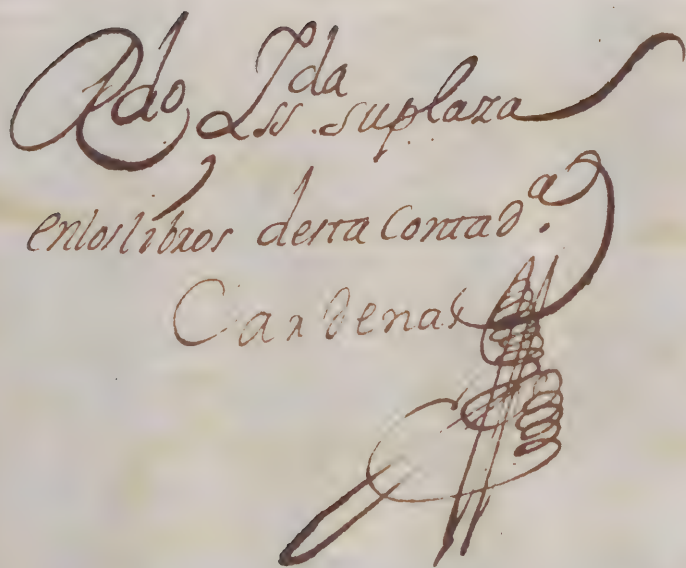 su plaza
en los libros desta Contad.ª
Cardenas